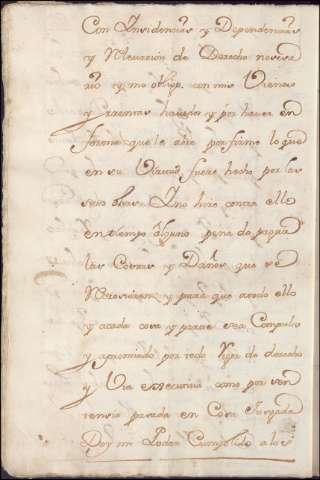 Con Insidencias y Dependencias
y Relevacion de Derecho nesesa
rio y me obligo con mis Vienes
y Rentas havidos y por haver en
forma que le abre por firme lo que
en su Virtud fuere hecho por las
y no hire contra ello
en tiempo alguno pena de pagar
las Costas y Daños que se
Recrecieren y para que a todo ello
y a cada cosa y parte sea Compulso
y apremiado por todo rigor de derecho
y Via executiva como por sen
tensia pasada en Cosa Jusgada
Doy mi Poder Cumplido a los